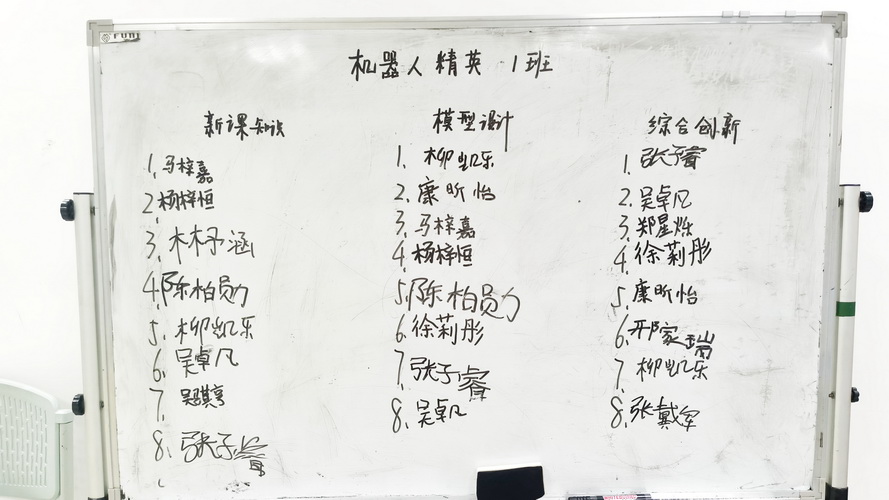 机器人精英 1班
新课知识
1.马梓嘉
2.杨梓恒
3.林予涵
4.陈柏勋
5.柳凯乐
6.吴卓凡
7.
8.张子睿
模型设计
1.柳凯乐
2.康昕怡
3.马梓嘉
4.杨梓恒
5.陈柏勋
6.徐莉彤
7.张子睿
8.吴卓凡
综合创新
1.张子睿
2.吴卓凡
3.郑星烁
4.徐莉彤
5.康昕怡
6.邢家瑞
7.柳凯乐
8.张戴军